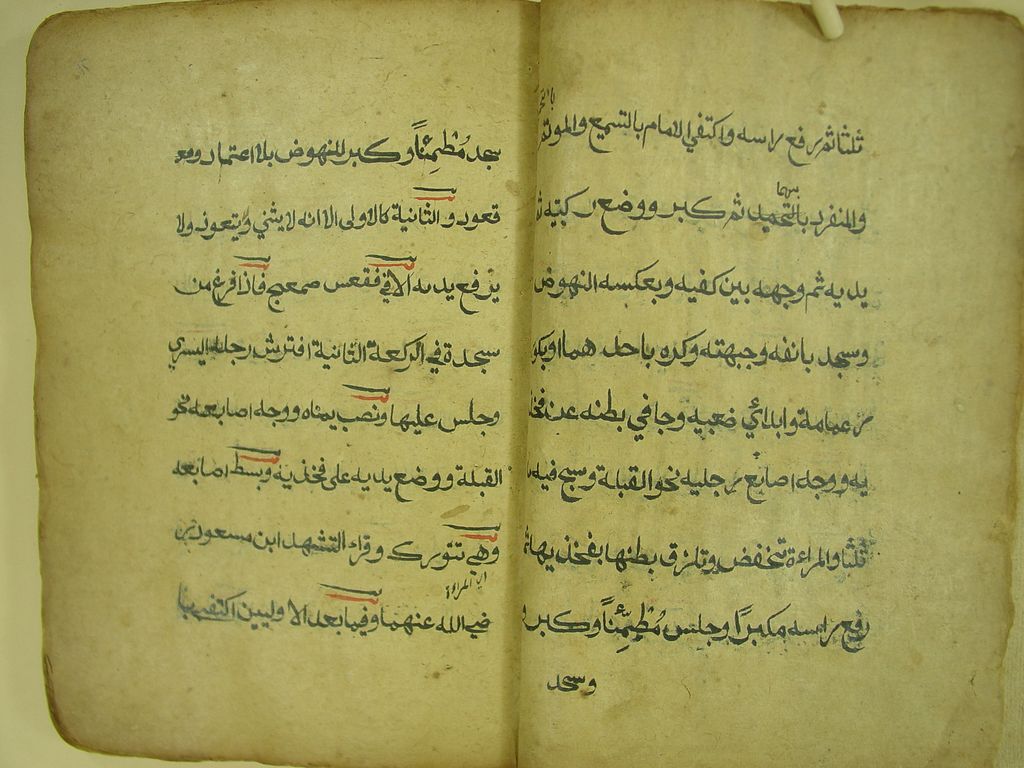 ثلثا ثم رفع راسه واكتفي الامام بالتسميع والموتم
والمنفرد بالتحميد ثم كبر ووضع ركبتيه ثم
بهما
يديه ثم وجهه بين كفيه وبعكسه النهوض
وسجد بانفه وجبهته وكره باحدهما او بكور
عمامة وابدائي ضعبيه وجافي بطنه عن فخذ
يه ووجه اصابع رجليه نحو القبلة وسبح فيه
ثلثا والمراءة تنخفض وتلزق بطنها بفخذيها ثم
رفع راسه مكبرا وجلس مُطْمِئناً وكبر و
وسجد
سجد مُطْمِئناً وكبر للنهوض بلا اعتماد و
قعود والثانية كالاولى الا انه لا يثني ولا يتعوذ ولا
يرفع يديه الا في فقعس صمعج فاذا فرغ من
سجدة في الركعة الثانية افترش رجله اليسري
وجلس عليها ونصب يمناه ووجه اصابعه نحو
القبلة ووضع يديه على فخذيه وبسط اصابعه
وهي تتورك وقراء التشهد ابن مسعود ر
اي المراءة
ضي الله عنهما وفيما بعد الاوليين اكتفي با